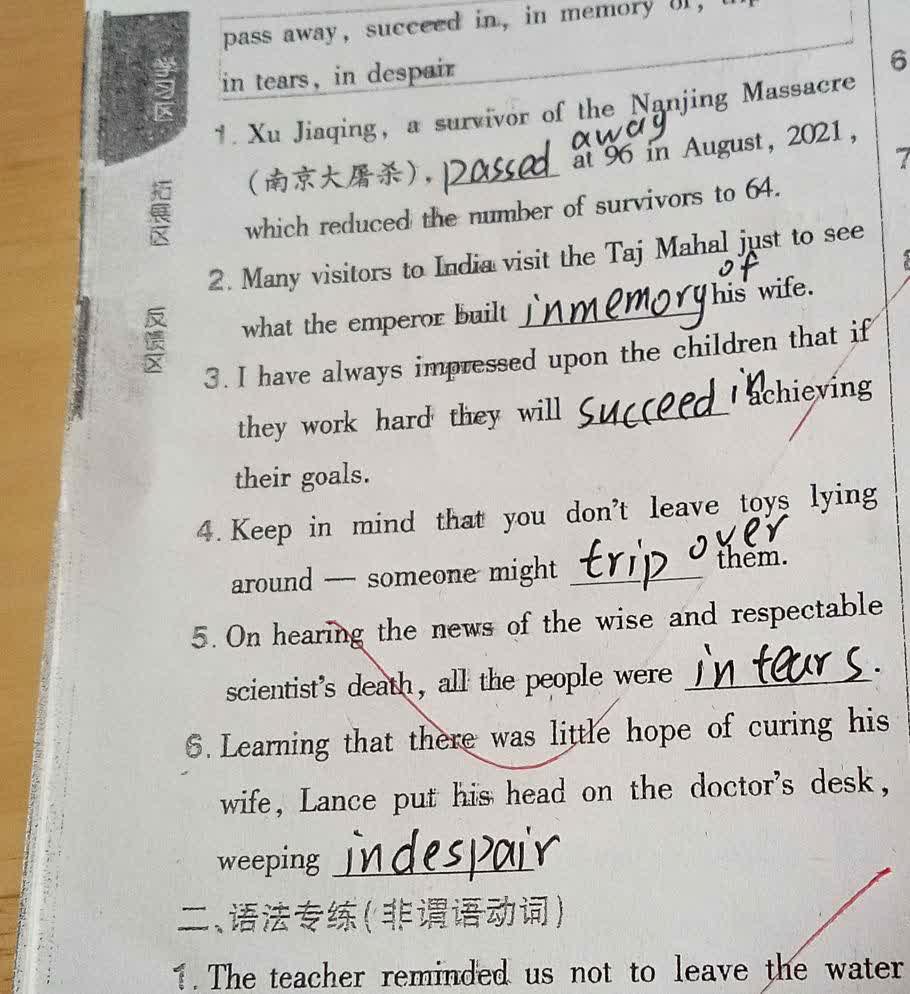 pass away, succeed in, in memory of,
in tears, in despair
1. Xu Jiaqing, a survivor of the Nanjing Massacre
(南京大屠杀), passed away at 96 in August, 2021,
which reduced the number of survivors to 64.
2. Many visitors to India visit the Taj Mahal just to see
what the emperor built in memory of his wife.
3. I have always impressed upon the children that if
they work hard they will succeed in achieving
their goals.
4. Keep in mind that you don't leave toys lying
around — someone might trip over them.
5. On hearing the news of the wise and respectable
scientist's death, all the people were in tears.
6. Learning that there was little hope of curing his
wife, Lance put his head on the doctor's desk,
weeping in despair
二、语法专练(非谓语动词)
1. The teacher reminded us not to leave the water
拓展区
反馈区
6
7